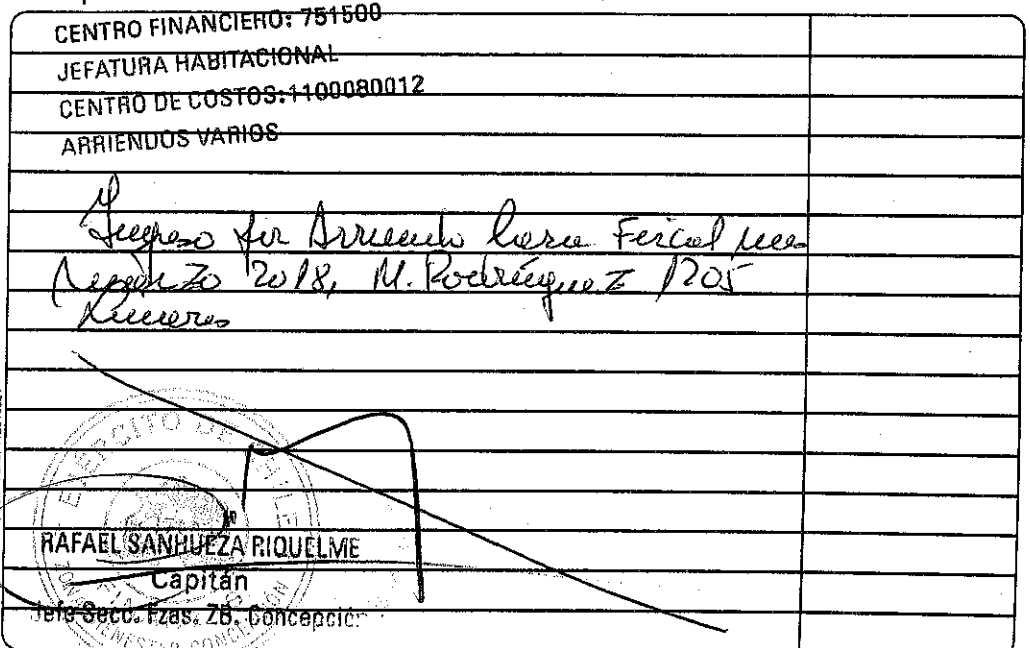 CENTRO FINANCIERO: 751500
JEFATURA HABITACIONAL
CENTRO DE COSTOS: 1100080012
ARRIENDOS VARIOS
Ingreso por Arriendo Casa Fiscal mes
2018, M. Rodríguez 1205
Linares
EJERCITO DE CHILE
RAFAEL SANHUEZA RIQUELME
Capitán
Jefe Secc. Fzas. ZB. Concepción
BIENESTAR CONCEPCION